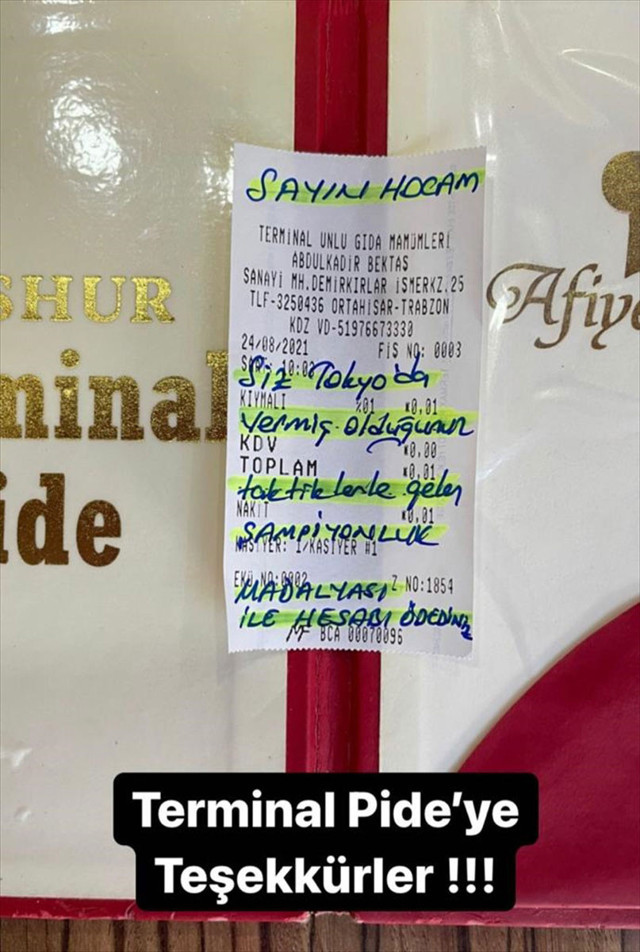 SAYIN HOCAM
TERMİNAL UNLU GIDA MAMÜMLERİ
ABDULKADİR BEKTAS
SANAYİ MH.DEMİRKIRLAR İSMERKZ.25
TLF-3250436 ORTAHİSAR-TRABZON
KDZ VD-51976673330
24/08/2021 FİŞ NO: 0003
Siz Tokyo'da
KIYMALI %01 *0,01
Vermiş olduğunuz
KDV *0,00
TOPLAM *0,01
taktiklerle gelen
NAKİT *0,01
ŞAMPİYONLUK
KASİYER: 1/KASİYER #1
EKÜ NO:0002 Z NO:1854
MADALYASI
İLE HESABI ÖDEDİNİZ
MF BCA 00070096
SHUR
minal
ide
Afiye
Terminal Pide’ye
Teşekkürler !!!